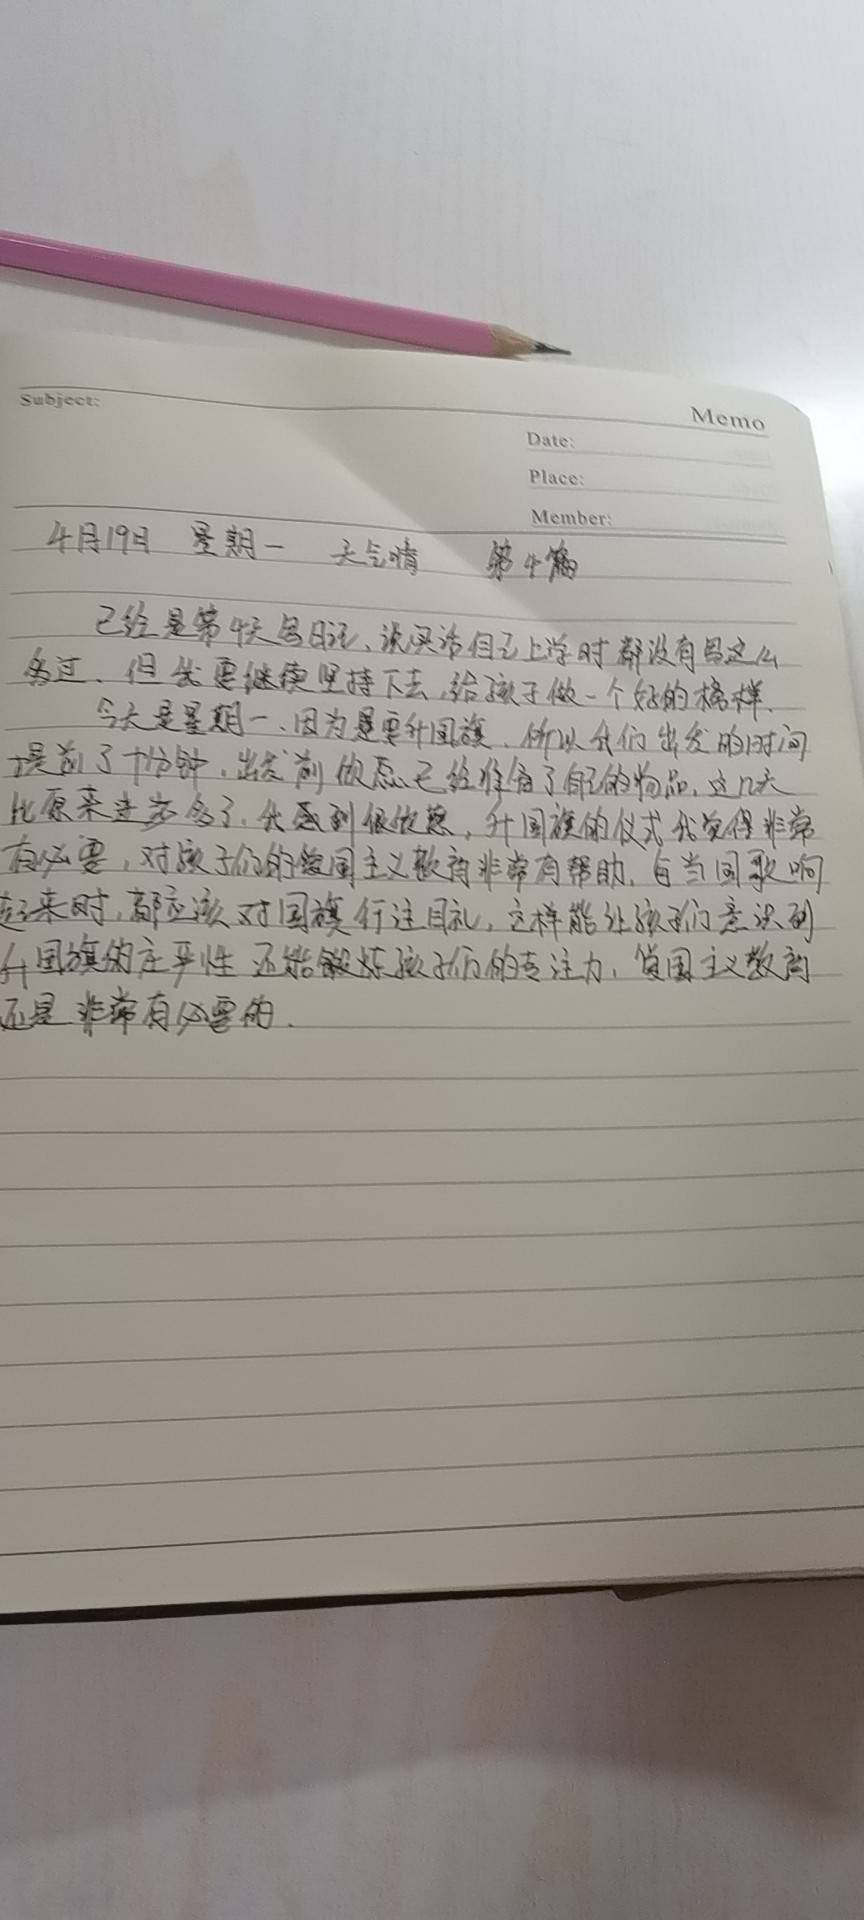 Subject:
Memo
Date:
Place:
Member:
4月19日 星期一 天气晴 第4篇
已经是第4天写日记、说实话自己上学时都没有写这么
多过、但我要继续坚持下去,给孩子做一个好的榜样、
今天是星期一、因为是要升国旗、所以我们出发的时间
提前了十分钟、出发前 已经准备了自己的物品、这几天
比原来进步多了、我感到很欣慰,升国旗的仪式我觉得非常
有必要,对孩子们的爱国主义教育非常有帮助、每当国歌响
起来时、都应该对国旗行注目礼,这样能让孩子们意识到
升国旗的庄严性 还能锻炼孩子们的专注力、爱国主义教育
还是非常有必要的.